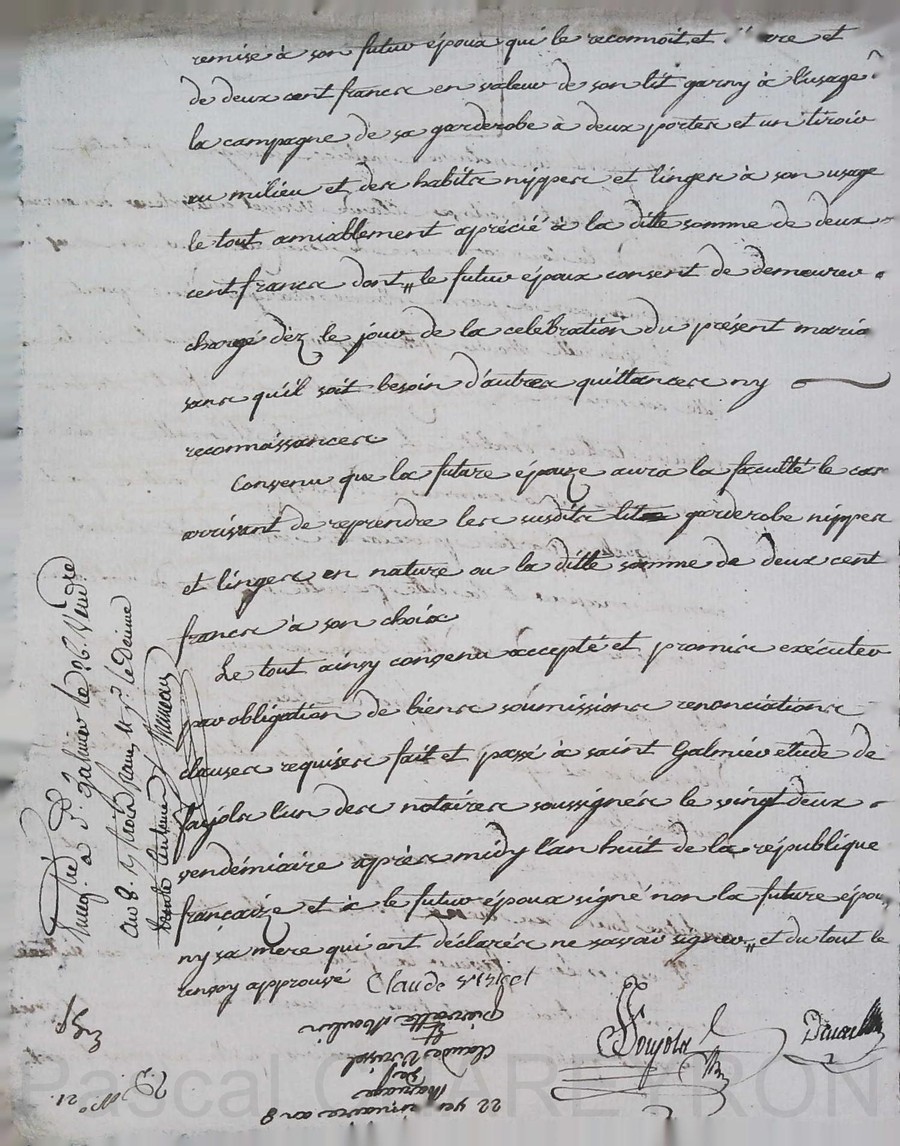 remise à son futur époux qui le reconnoit et et
de deux cent francs en valeur de son lit garny à l'usage
la campagne de sa garderobe a deux portes et un tiroir
au milieu et des habits nippes et linges à son usage
le tout amiablement aprécié à la ditte somme de deux
cent francs dont le futur époux consent de demeurer
chargé dez le jour de la celébration du présent maria
sans qu'il soit besoin d'autres quittances ny
reconnaissances
Convenu que la future épouze aura la faculté le cas
arrivant de reprendre les susdits lit garderobe nippes
et linges en nature ou la ditte somme de deux cent
francs à son choix
Le tout ainsy convenu accepté et promis exécuter
par obligation de biens soumissions renonciations
clauses requises fait et passé à saint Galmier etude de
l'un des notaires soussignés le vingt deux
vendémiaire après midy l'an huit de la république
françaize et à le futur époux signé non la future épou
ny sa mère qui ont déclarés ne savoir signer et du tout le
renvoy approuvé Claude
à St galmier le 26. Vend.re
an 8. trois francs le décime
22 vendemiaire an 8
Mariage
De
Claude Virissel
Et
pierrette Moulin
N° 21
Pascal CLARETRON